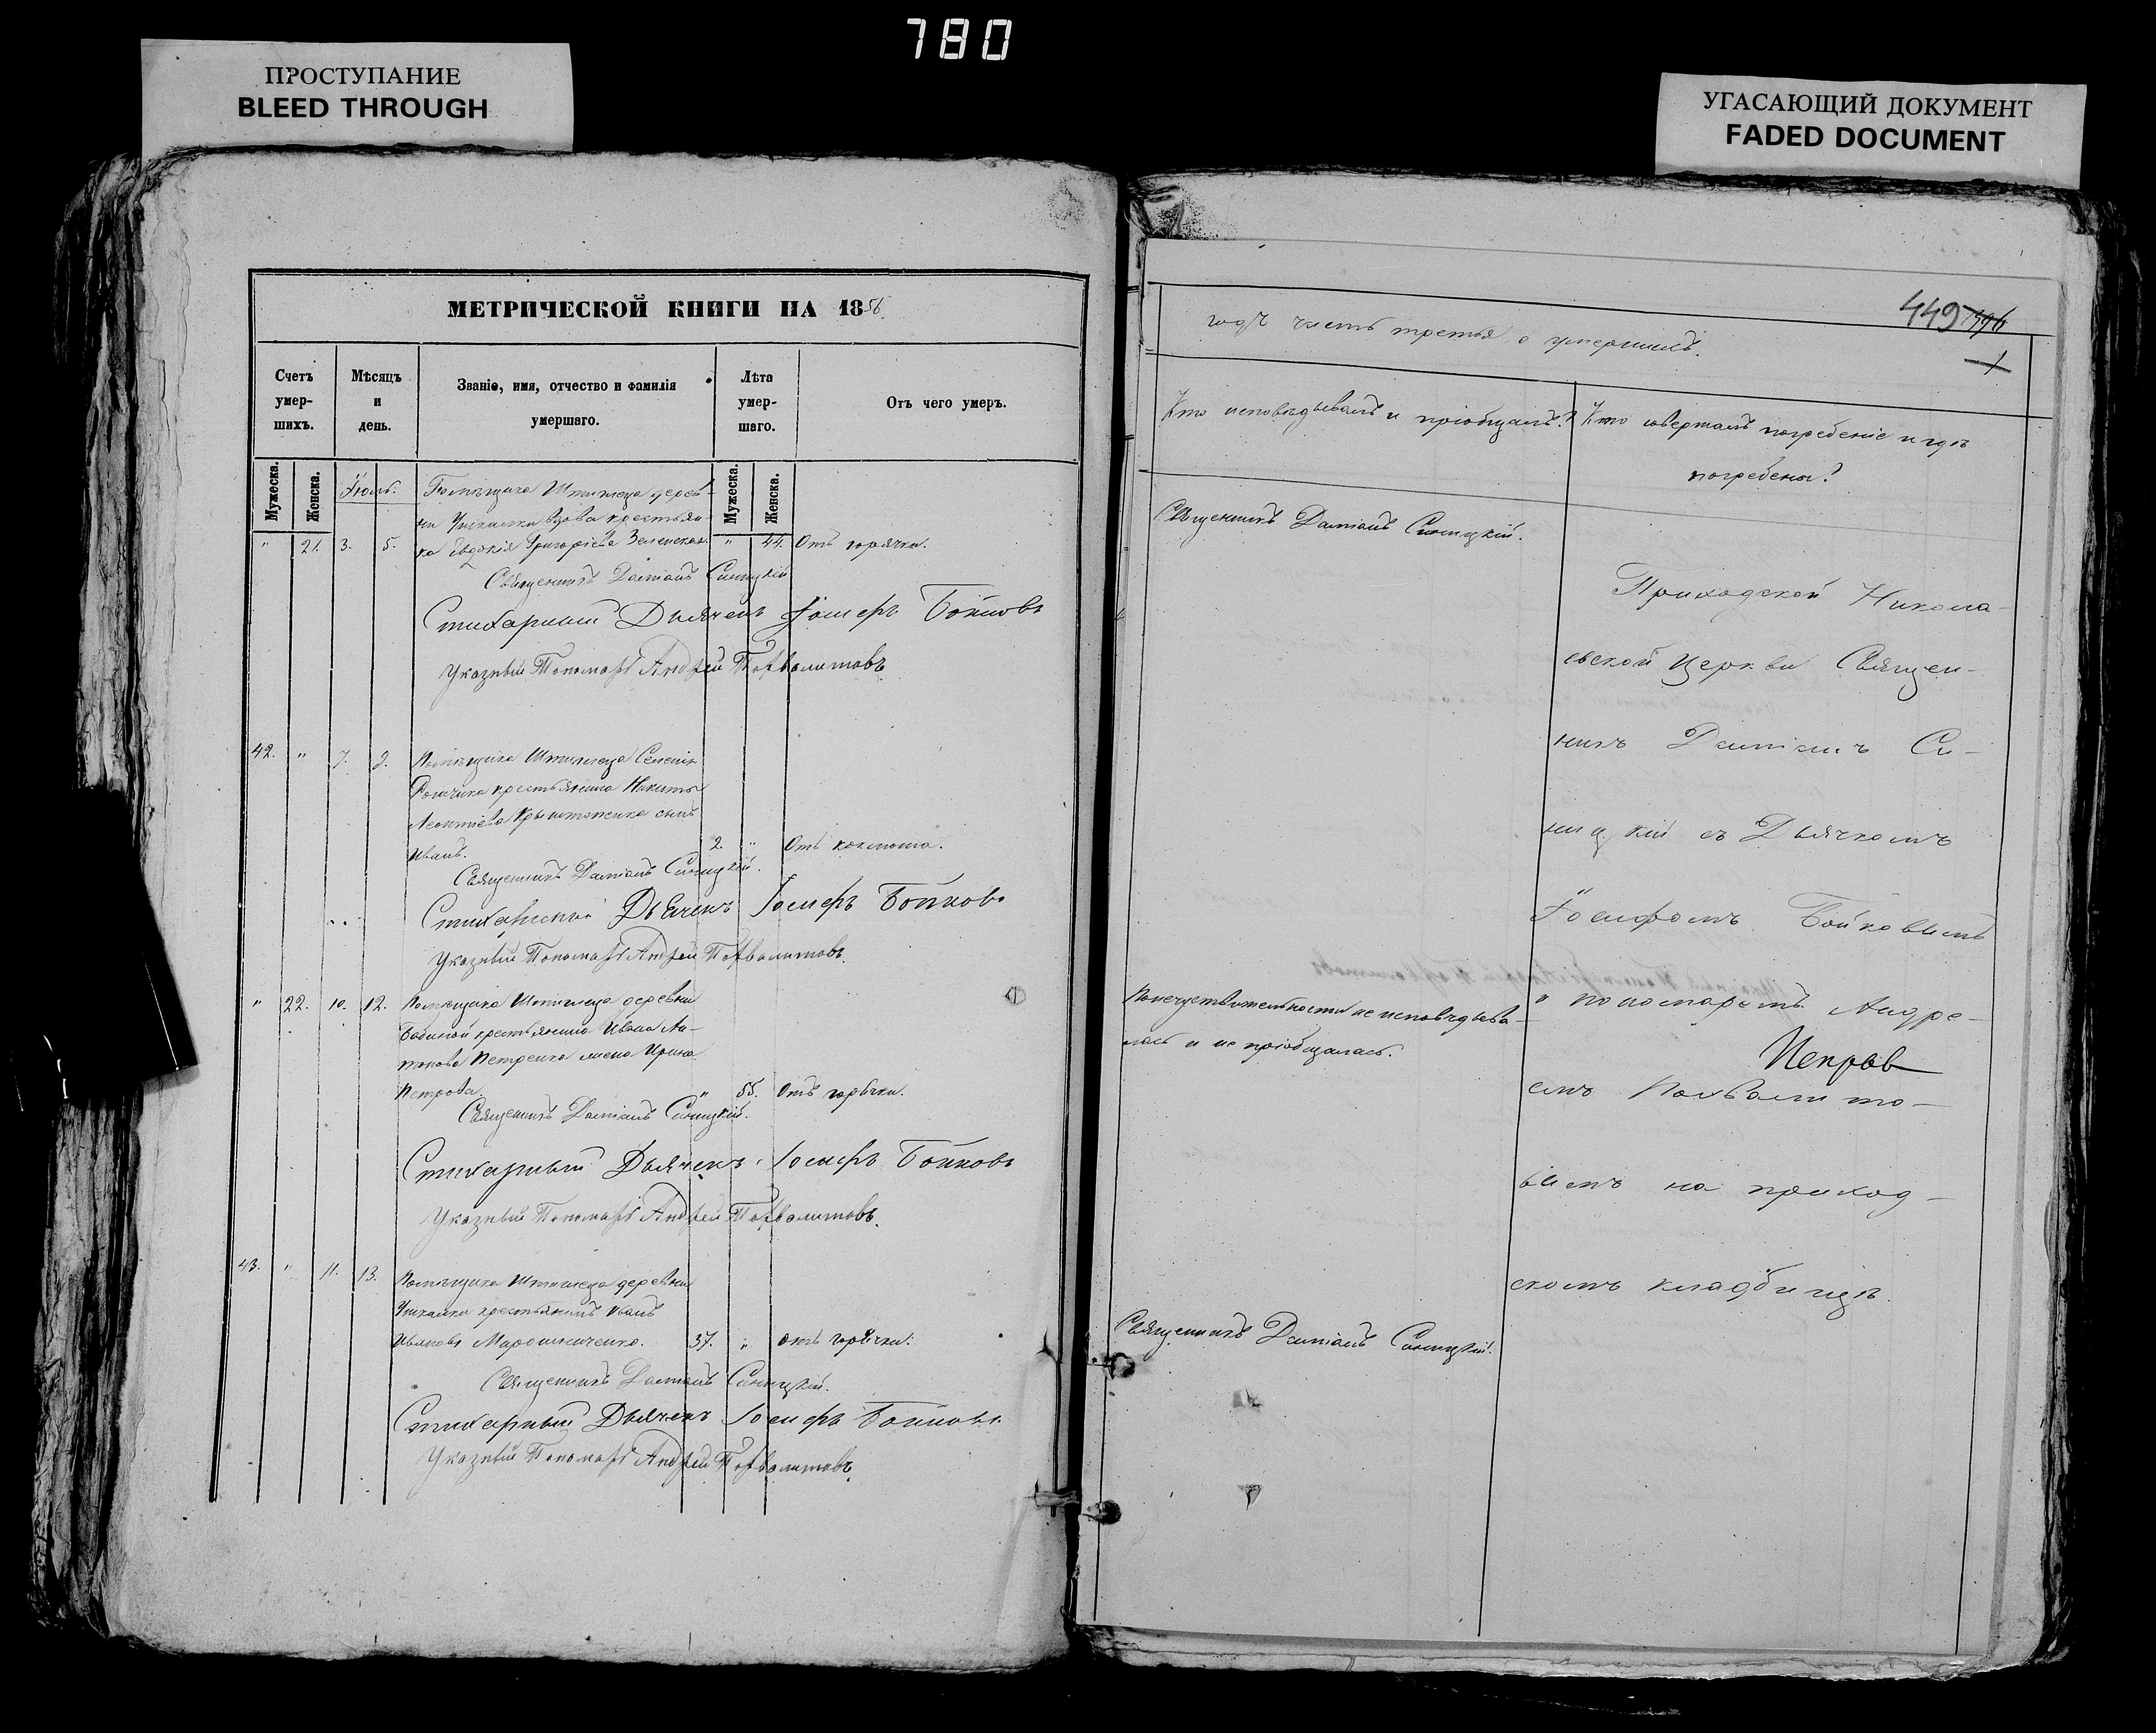 780
ПРОСТУПАНИЕ
BLEED THROUGH
УГАСАЮЩИЙ ДОКУМЕНТ
FADED DOCUMENT
МЕТРИЧЕСКОЙ КНИГИ НА 1856
Счетъ умер-шихъ.
Мѣсяцъ и день.
Званіе, имя, отчество и фамилія умершаго.
Лѣта умер-шаго.
Отъ чего умеръ.
Мужеска.
Женска.
Мужеска.
Женска.
Помѣщика Штиглица дерев-
вдова крестьян-
" 21. 3. 5. ка Евдокія Григоріева Зеленская " 44. Отъ горячки.
Священникъ Даміанъ Синицкій
Стихарный Дьячекъ Іосифъ Бойковъ
Указный Пономарь Андрей Похвалитовъ
42. " 7. 9. Помѣщика Штиглица Селенія
крестьянина Никиты
Леонтіева сынъ
Иванъ. 2. " Отъ коклюша.
Священникъ Даміанъ Синицкій.
Стихарный Дьячекъ Іосифъ Бойковъ
Указный Пономарь Андрей Похвалитовъ.
" 22. 10. 12. Помѣщика Штиглица деревни
крестьянина Ивана Ан-
тонова Петренка жена Ирина
Петрова " 55. Отъ горячки.
Священникъ Даміанъ Синицкій.
Стихарный Дьячекъ Іосифъ Бойковъ
Указный Пономарь Андрей Похвалитовъ.
43. " 11. 13. Помѣщика Штиглица деревни
крестьянинъ Иванъ
37. " отъ горячки.
Священникъ Даміанъ Синицкій.
Стихарный Дьячекъ Іосифъ Бойковъ
Указный Пономарь Андрей Похвалитовъ.
449
годъ часть третья о умершихъ.
Кто исповѣдывалъ и пріобщалъ?
Кто совершалъ погребеніе и гдѣ
погребены?
Священникъ Даміанъ Синицкій.
Приходской Никола-
евской Церкви Священ-
никъ Даміанъ Си-
ницкій съ Дьячкомъ
Іосифомъ Бойковымъ
По нечувствительности не исповѣдыва-
лась и не пріобщалась.
и пономаремъ Андре-
емъ Похвалито-
вымъ на приход-
скомъ кладбищѣ.
Священникъ Даміанъ Синицкій.